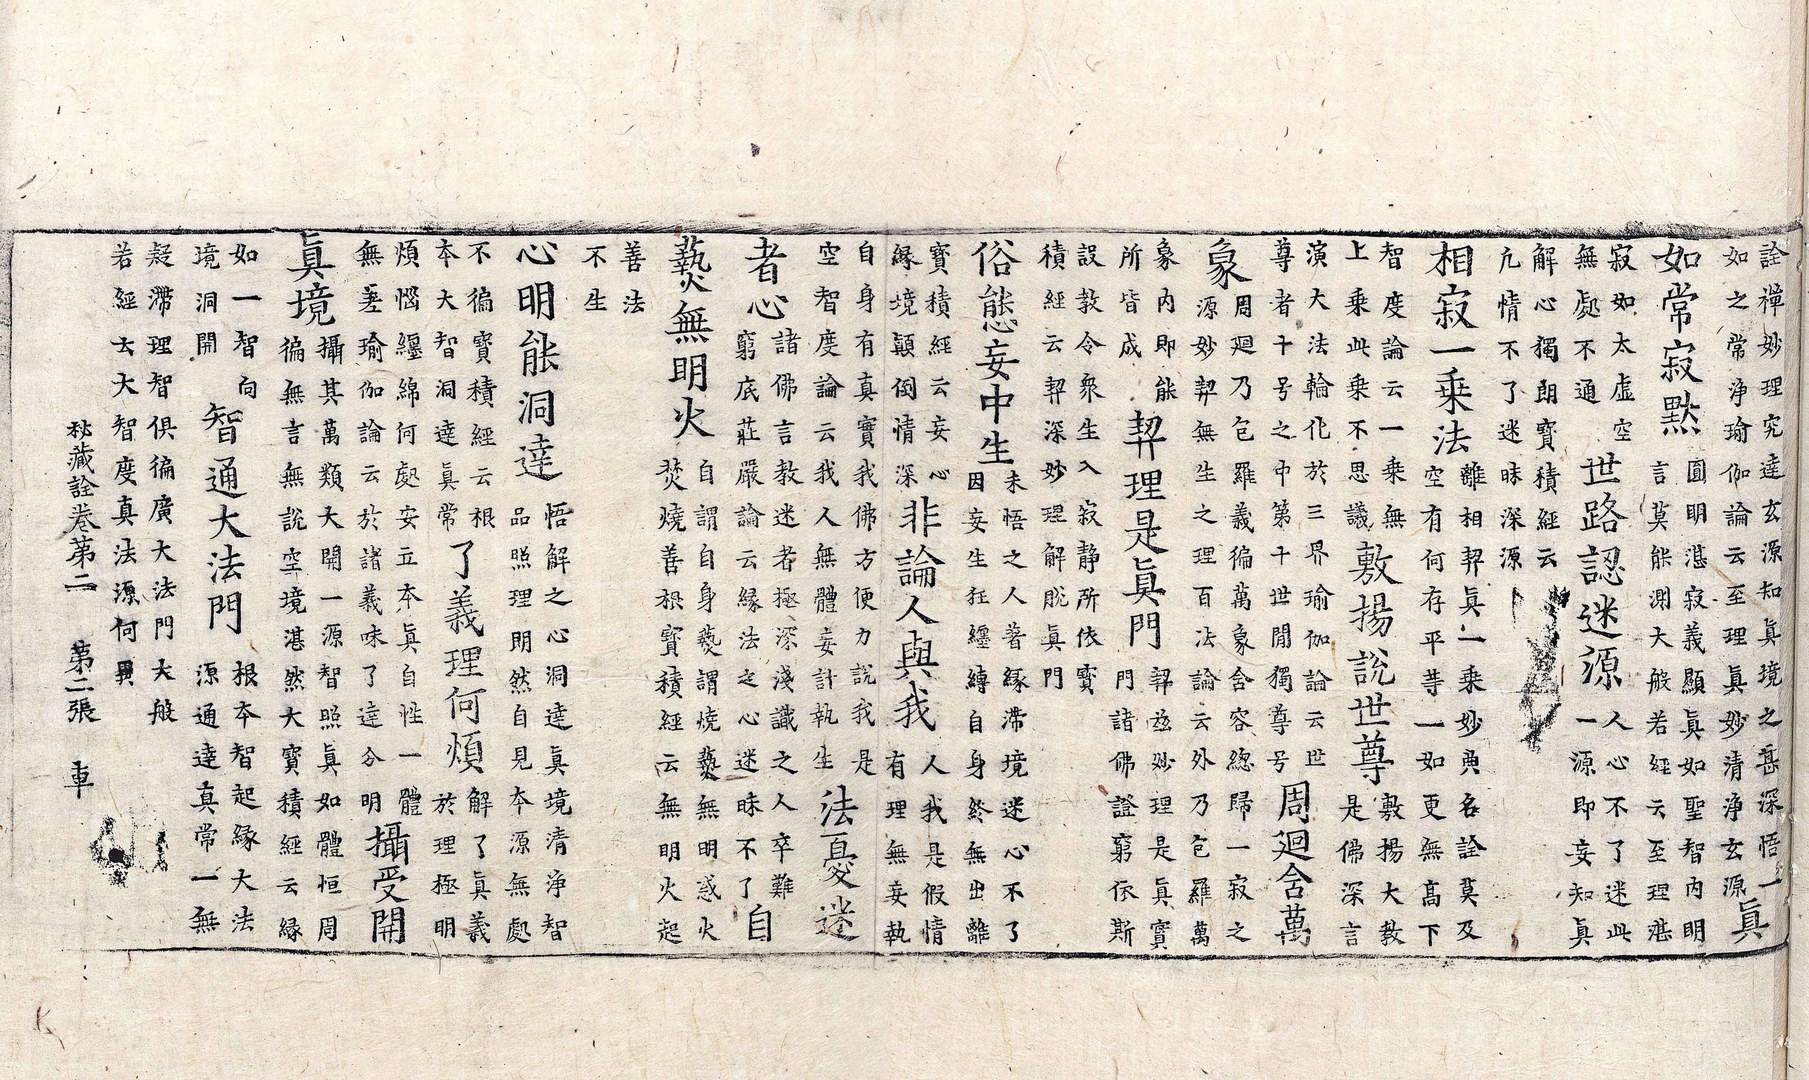 詮禪妙理究達玄源知眞境之岳深悟一
如之常浄瑜伽論云至理眞妙清浄玄源
眞
如常寂默
圓明湛寂義顯眞如聖智内明
言莫能測大般若經云至理湛
寂如太虛空
無處不通
世路認迷源
人心不了迷此
一源即妄知眞
解心獨朗寶積經云
亢情不了迷昧深源
相寂一乘法
離相契眞一乘妙典名詮莫及
空有何存平等一如更無高下
智度論云一乘無
上乘此乘不思議
敷揚說世尊
敷揚大教
是佛深言
演大法輪化於三界瑜伽論云世
尊者十号之中第十世間獨尊号
周廻含萬
象
周廻乃包羅義徧萬象含容緫歸一寂之
源妙契無生之理百法論云外乃包羅萬
象内即能
所皆成
契理是眞門
契茲妙理是眞實
門諸佛證窮依斯
設教令衆生入寂静所依寳
積經云契深妙理解脫眞門
俗態妄中生
未悟之人著縁滯境迷心不了
因妄生狂纒縛自身終無出離
寳積經云妄心
縁境顛倒情深
非論人與我
人我是假情
有理無妄執
自身有真實我佛方便力說我是
空智度論云我人無體妄計執生
法憂迷
者心
諸佛言教迷者極深淺識之人卒難
窮底莊嚴論云縁法之心迷昧不了
自
爇無明火
自謂自身爇謂燒爇無明惑火
焚燒善根寳積經云無明火起
善法
不生
心明能洞達
悟解之心洞達真境清浄智
品照理朗然自見本源無處
不徧寳積經云根
本大智洞達眞常
了義理何煩
解了眞義
於理極明
煩惱纒綿何處安立本眞自性一體
無差瑜伽論云於諸義味了達分明
攝受開
眞境
攝其萬類大開一源智照眞如體恒周
徧無言無說空境湛然大寳積經云縁
如一智向
境洞開
智通大法門
根本智起縁大法
源通達真常一無
疑滯理智俱徧廣大法門大般
若經云大智度真法源何異
秘藏詮卷第二 第二張 車